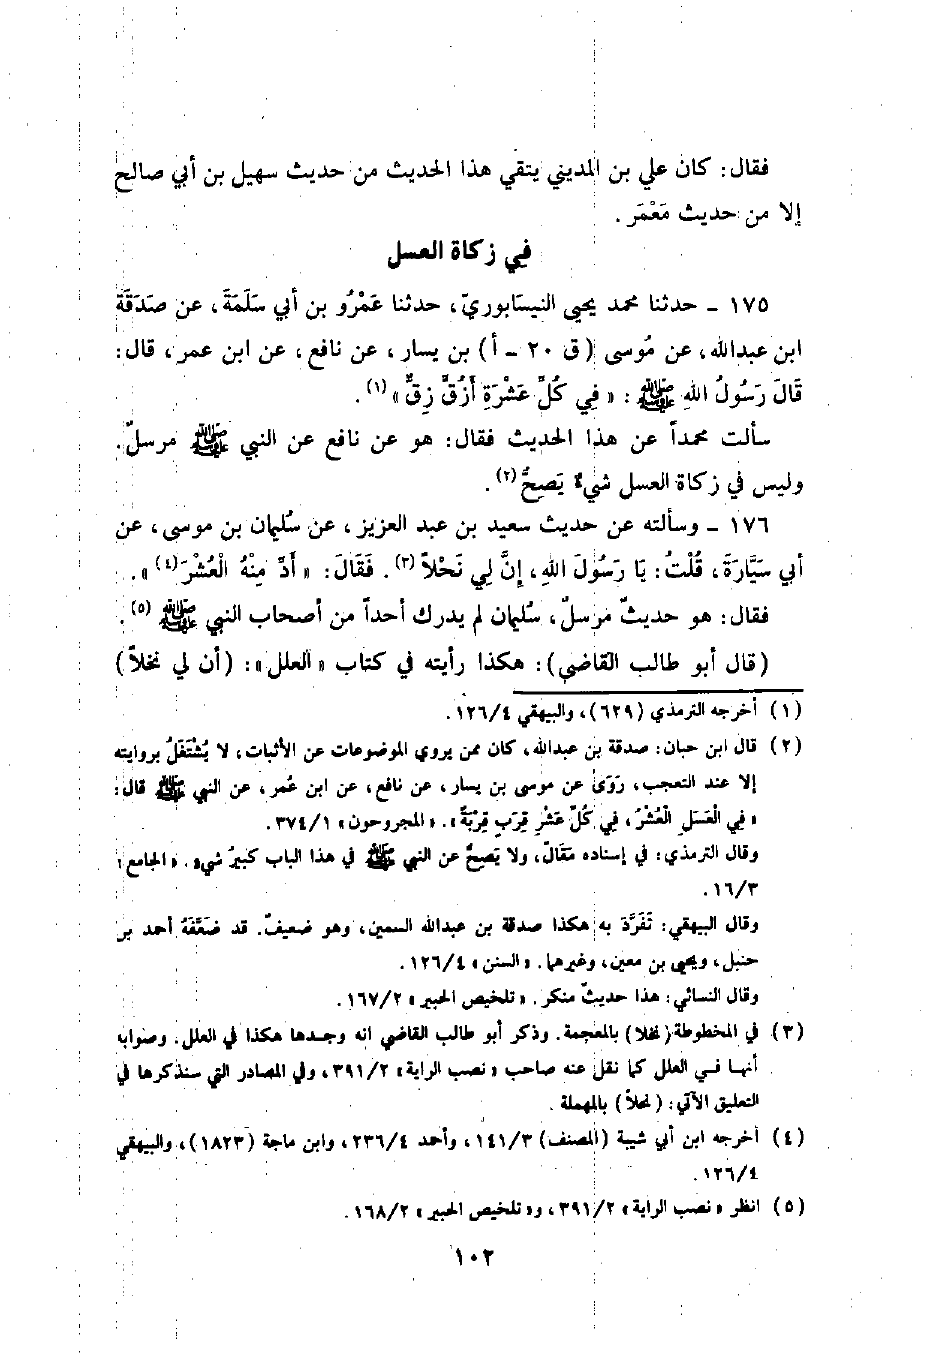 فقال: كان علي بن المديني يتقي هذا الحديث من حديث سهيل بن أبي صالح
إلا من حديث مَعْمَر.
في زكاة العسل
١٧٥ ـ حدثنا محمد يحيى النيسابوريّ، حدثنا عَمْرُو بن أبي سَلَمَةَ، عن صَدَقَةَ
ابن عبدالله، عن مُوسى (ق ٢٠ ـ أ) بن يسار، عن نافع، عن ابن عمر، قال:
قَالَ رَسُولُ اللهِ ﷺ: «فِي كُلِّ عَشْرَةِ أَزُقٍّ زِقٌّ»(١).
سألت محمداً عن هذا الحديث فقال: هو عن نافع عن النبي ﷺ مرسلّ.
وليس في زكاة العسل شيءٌ يَصِحُّ(٢).
١٧٦ ـ وسألته عن حديث سعيد بن عبد العزيز، عن سُليمان بن موسى، عن
أبي سَيَّارَةَ، قُلْتُ: يَا رَسُولَ اللهِ، إِنَّ لِي نَحْلاً(٣). فَقَالَ: «أَدِّ مِنْهُ الْعُشْرَ(٤)».
فقال: هو حديثٌ مرسلٌ، سُليمان لم يدرك أحداً من أصحاب النبي ﷺ(٥).
(قال أبو طالب القاضي): هكذا رأيته في كتاب «العلل»: (أن لي نخلاً)
(١) أخرجه الترمذي (٦٢٩)، والبيهقي ١٢٦/٤.
(٢) قال ابن حبان: صدقة بن عبدالله، كان ممن يروي الموضوعات عن الأثبات، لا يُشْتَغَلُ بروايته
إلا عند التعجب، رَوَىٰ عن موسى بن يسار، عن نافع، عن ابن عُمر، عن النبي ﷺ قال:
«فِي الْعَسَلِ الْعُشْرُ، فِي كُلِّ عَشْرِ قِرَبٍ قِرْبَةٌ». «المجروحون» ٣٧٤/١.
وقال الترمذي: في إسناده مَقَالٌ، ولا يَصِحُّ عن النبي ﷺ في هذا الباب كبيرُ شيء. «الجامع»
١٦/٣.
وقال البيهقي: تَفَرَّدَ به هكذا صدقة بن عبدالله السمين، وهو ضعيفٌ. قد ضَعَّفَهُ أحمد بن
حنبل، ويحيى بن معين، وغيرهما. «السنن» ١٢٦/٤.
وقال النسائي: هذا حديثٌ منكر. «تلخيص الحبير» ١٦٧/٢.
(٣) في المخطوطة (نخلا) بالمعجمة. وذكر أبو طالب القاضي انه وجدها هكذا في العلل. وصوابه
أنها في العلل كما نقل عنه صاحب «نصب الراية» ٣٩١/٢، وفي المصادر التي سنذكرها في
التعليق الآتي: (نحلاً) بالمهملة.
(٤) أخرجه ابن أبي شيبة (المصنف) ١٤١/٣، وأحمد ٢٣٦/٤، وابن ماجة (١٨٢٣)، والبيهقي
١٢٦/٤.
(٥) انظر «نصب الراية» ٣٩١/٢، و«تلخيص الحبير» ١٦٨/٢.
١٠٢